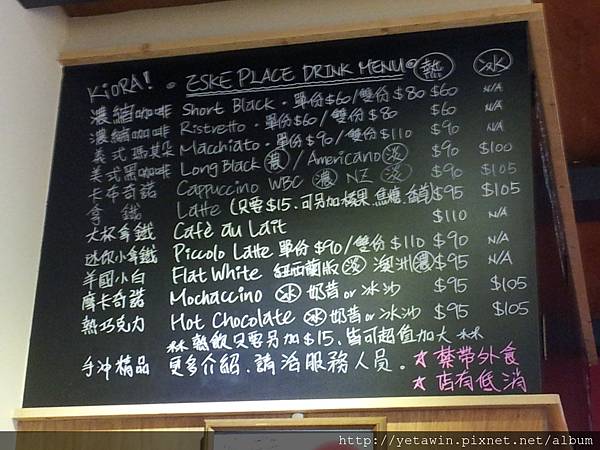 KiORA! ESKE PLACE DRINK MENU 熱 冰
濃縮咖啡 Short Black · 單份$60/雙份$80 $60 N/A
濃縮咖啡 Ristretto · 單份$60/雙份$80 $60 N/A
義式瑪其朵 Macchiato · 單份$90/雙份$110 $90 N/A
美式黑咖啡 Long Black 濃 / Americano 淡 $90 $100
卡布奇諾 Cappuccino WBC 濃 NZ 淡 $90 $105
拿鐵 Latte (只要$15,可另加榛果.焦糖.香草) $95 $105
大杯拿鐵 Café au Lait $110 N/A
迷你小拿鐵 Piccolo Latte 單份$90/雙份$110 $90 N/A
羊國小白 Flat White 紐西蘭版 淡 澳洲 濃 $95 N/A
摩卡奇諾 Mochaccino 冰 奶昔or冰沙 $95 $105
熱巧克力 Hot Chocolate 冰 奶昔or冰沙 $95 $105
熱飲只要另加$15,皆可超值加大
手沖精品 更多介紹,請洽服務人員.
★禁帶外食
★店有低消
http://yetawin.pixnet.net/album